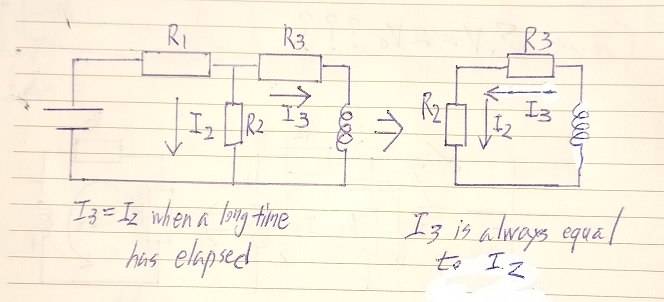 R1
R3
R3
I2
R2
I3
R2
I2
I3
I3 = I2 when a long time
has elapsed
I3 is always equal
to I2